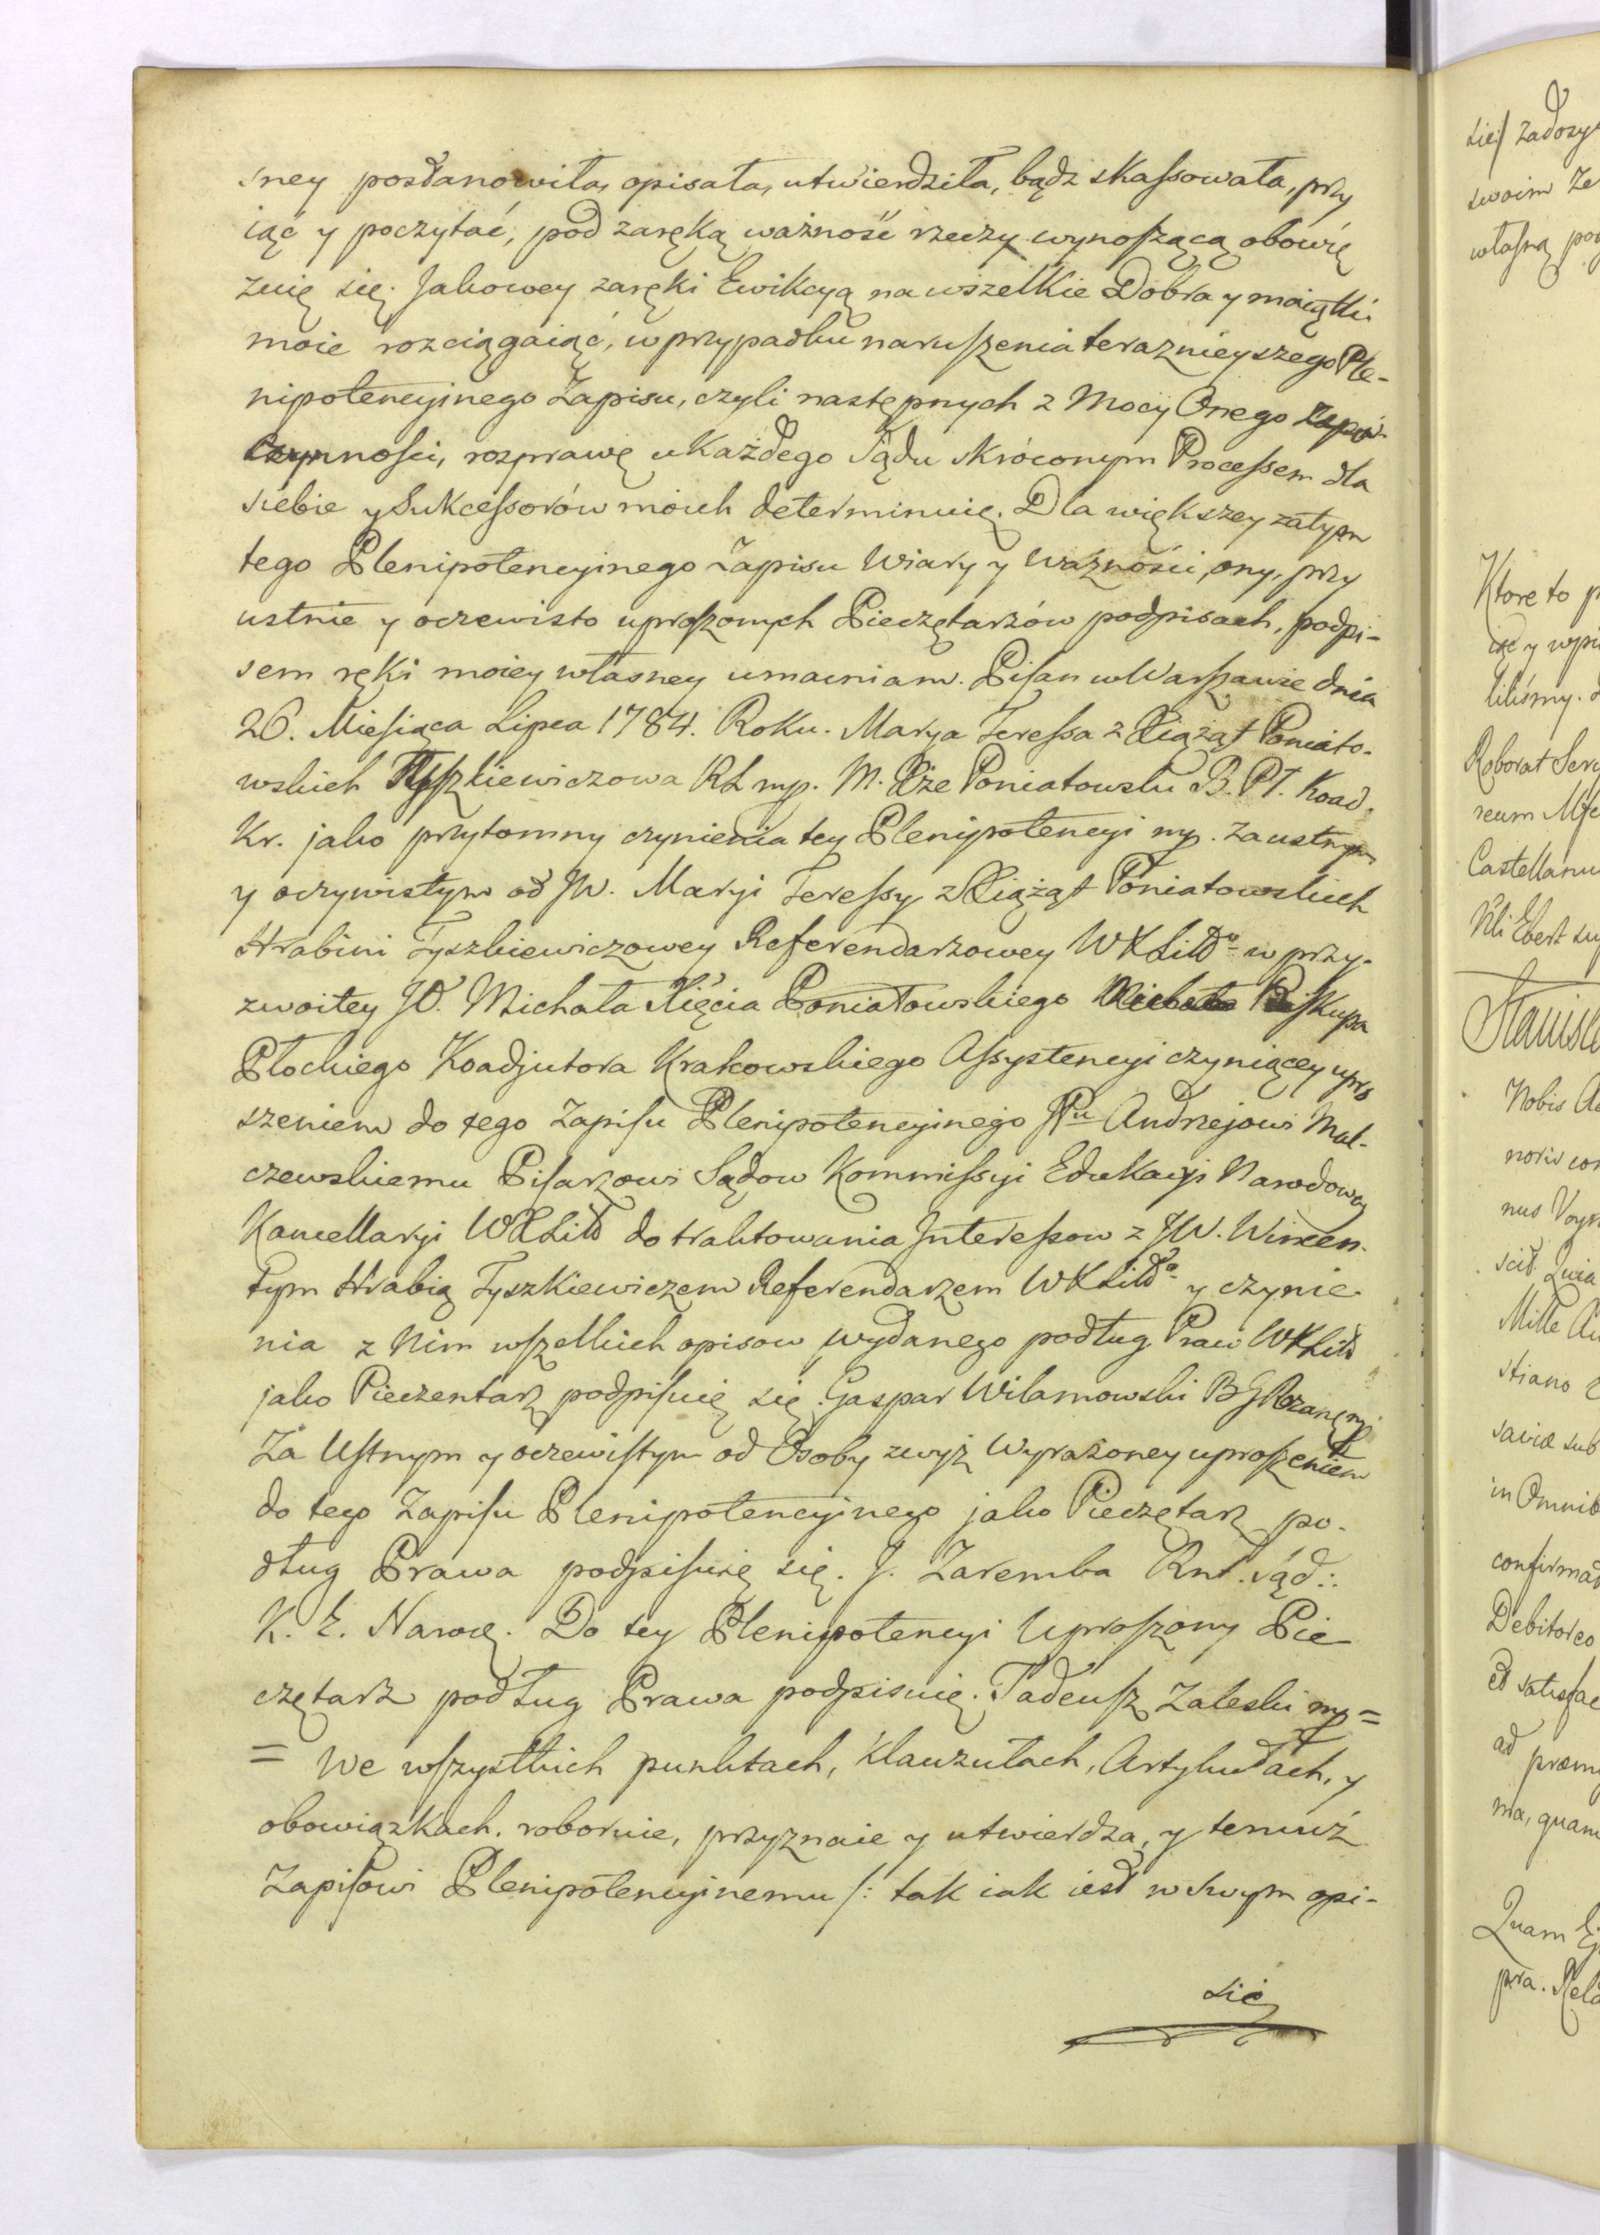 sney postanowiła, opisała, utwierdziła, bądz skassowała, przy
iąć y poczytać, pod zaręką ważność rzeczy wynoszącą obowię
zuię się. Jakowey zaręki Ewikcyą na wszelkie Dobra y maiątki
moie rozciągaiąć, w przypadku naruszenia teraznieyszego Ple-
nipotencyinego Zapisu, czyli następnych z Mocy Onego
czynnosci, rozprawę u Każdego Sądu skróconym Processem dla
siebie y Sukcessorów moich determinuię. Dla większey zatym
tego Plenipotencyinego Zapisu Wiary y Ważności, ony, przy
ustnie y oczewisto uproszonych Pieczętarzów podpisach, podpi-
sem ręki moiey własney umacniam. Pisan w Warszawie dnia
26. Miesiąca Lipca 1784. Roku. Marya Teressa z Xiążąt Poniato-
wskich Tyszkiewiczowa RL mp. M. Xże Poniatowski B. Pł. Koad.
Kr. jako przytomny czynienia tey Plenipotencyi mp. Za ustnym
y oczywistym od JW. Maryi Teressy z Xiążąt Poniatowskich
Hrabini Tyszkiewiczowey Referendarzowey WXLittº w przy-
zwoitey JO. Michała Xięcia Poniatowskiego Biskupa
Płockiego Koadjutora Krakowskiego Assystencyi czyniącey upro
szeniem do tego Zapisu Plenipotencyinego JPu Andrzejowi Mal-
czewskiemu Pisarzowi Sądow Kommissyi Edukacyi Narodowey
Kancellaryi WXLitt do traktowania Interessow z JW. Wincen-
tym Hrabią Tyszkiewiczem Referendarzem WXLittº y czynie-
nia z Nim wszelkich opisow wydanego podług Praw WXLitt
jako Pieczentarz podpisuię się. Gaspar Wilamowski
Za Ustnym y oczewistym od Osoby zwyż Wyrażoney uproszeniem
do tego Zapisu Plenipotencyinego jako Pieczętarz po-
dług Prawa podpisuię się. J. Zaremba Rnt. Sąd:.
K. E. Narod. Do tey Plenipotencyi Uproszony Pie
czętarz podług Prawa podpisuię. Tadeusz Zaleski mp =
= We wszystkich punktach, Klauzułach, Artykułach, y
obowiązkach. roboruie, przyznaie y utwierdza, y temuż
Zapisowi Plenipotencyinemu /: tak iak iest w Swym opi-
sie
sie/ zadosy
swoim Ze
własną
Ktore to
y wpi
liliśmy.
Roborat
reum
Castellanu
Stanisł
Nobis
noris
nus
Mille
stiano
saviæ sub
in Omnib
confirmat
Debitores
et satisfac
ad
ma, quam
Quam
pra.